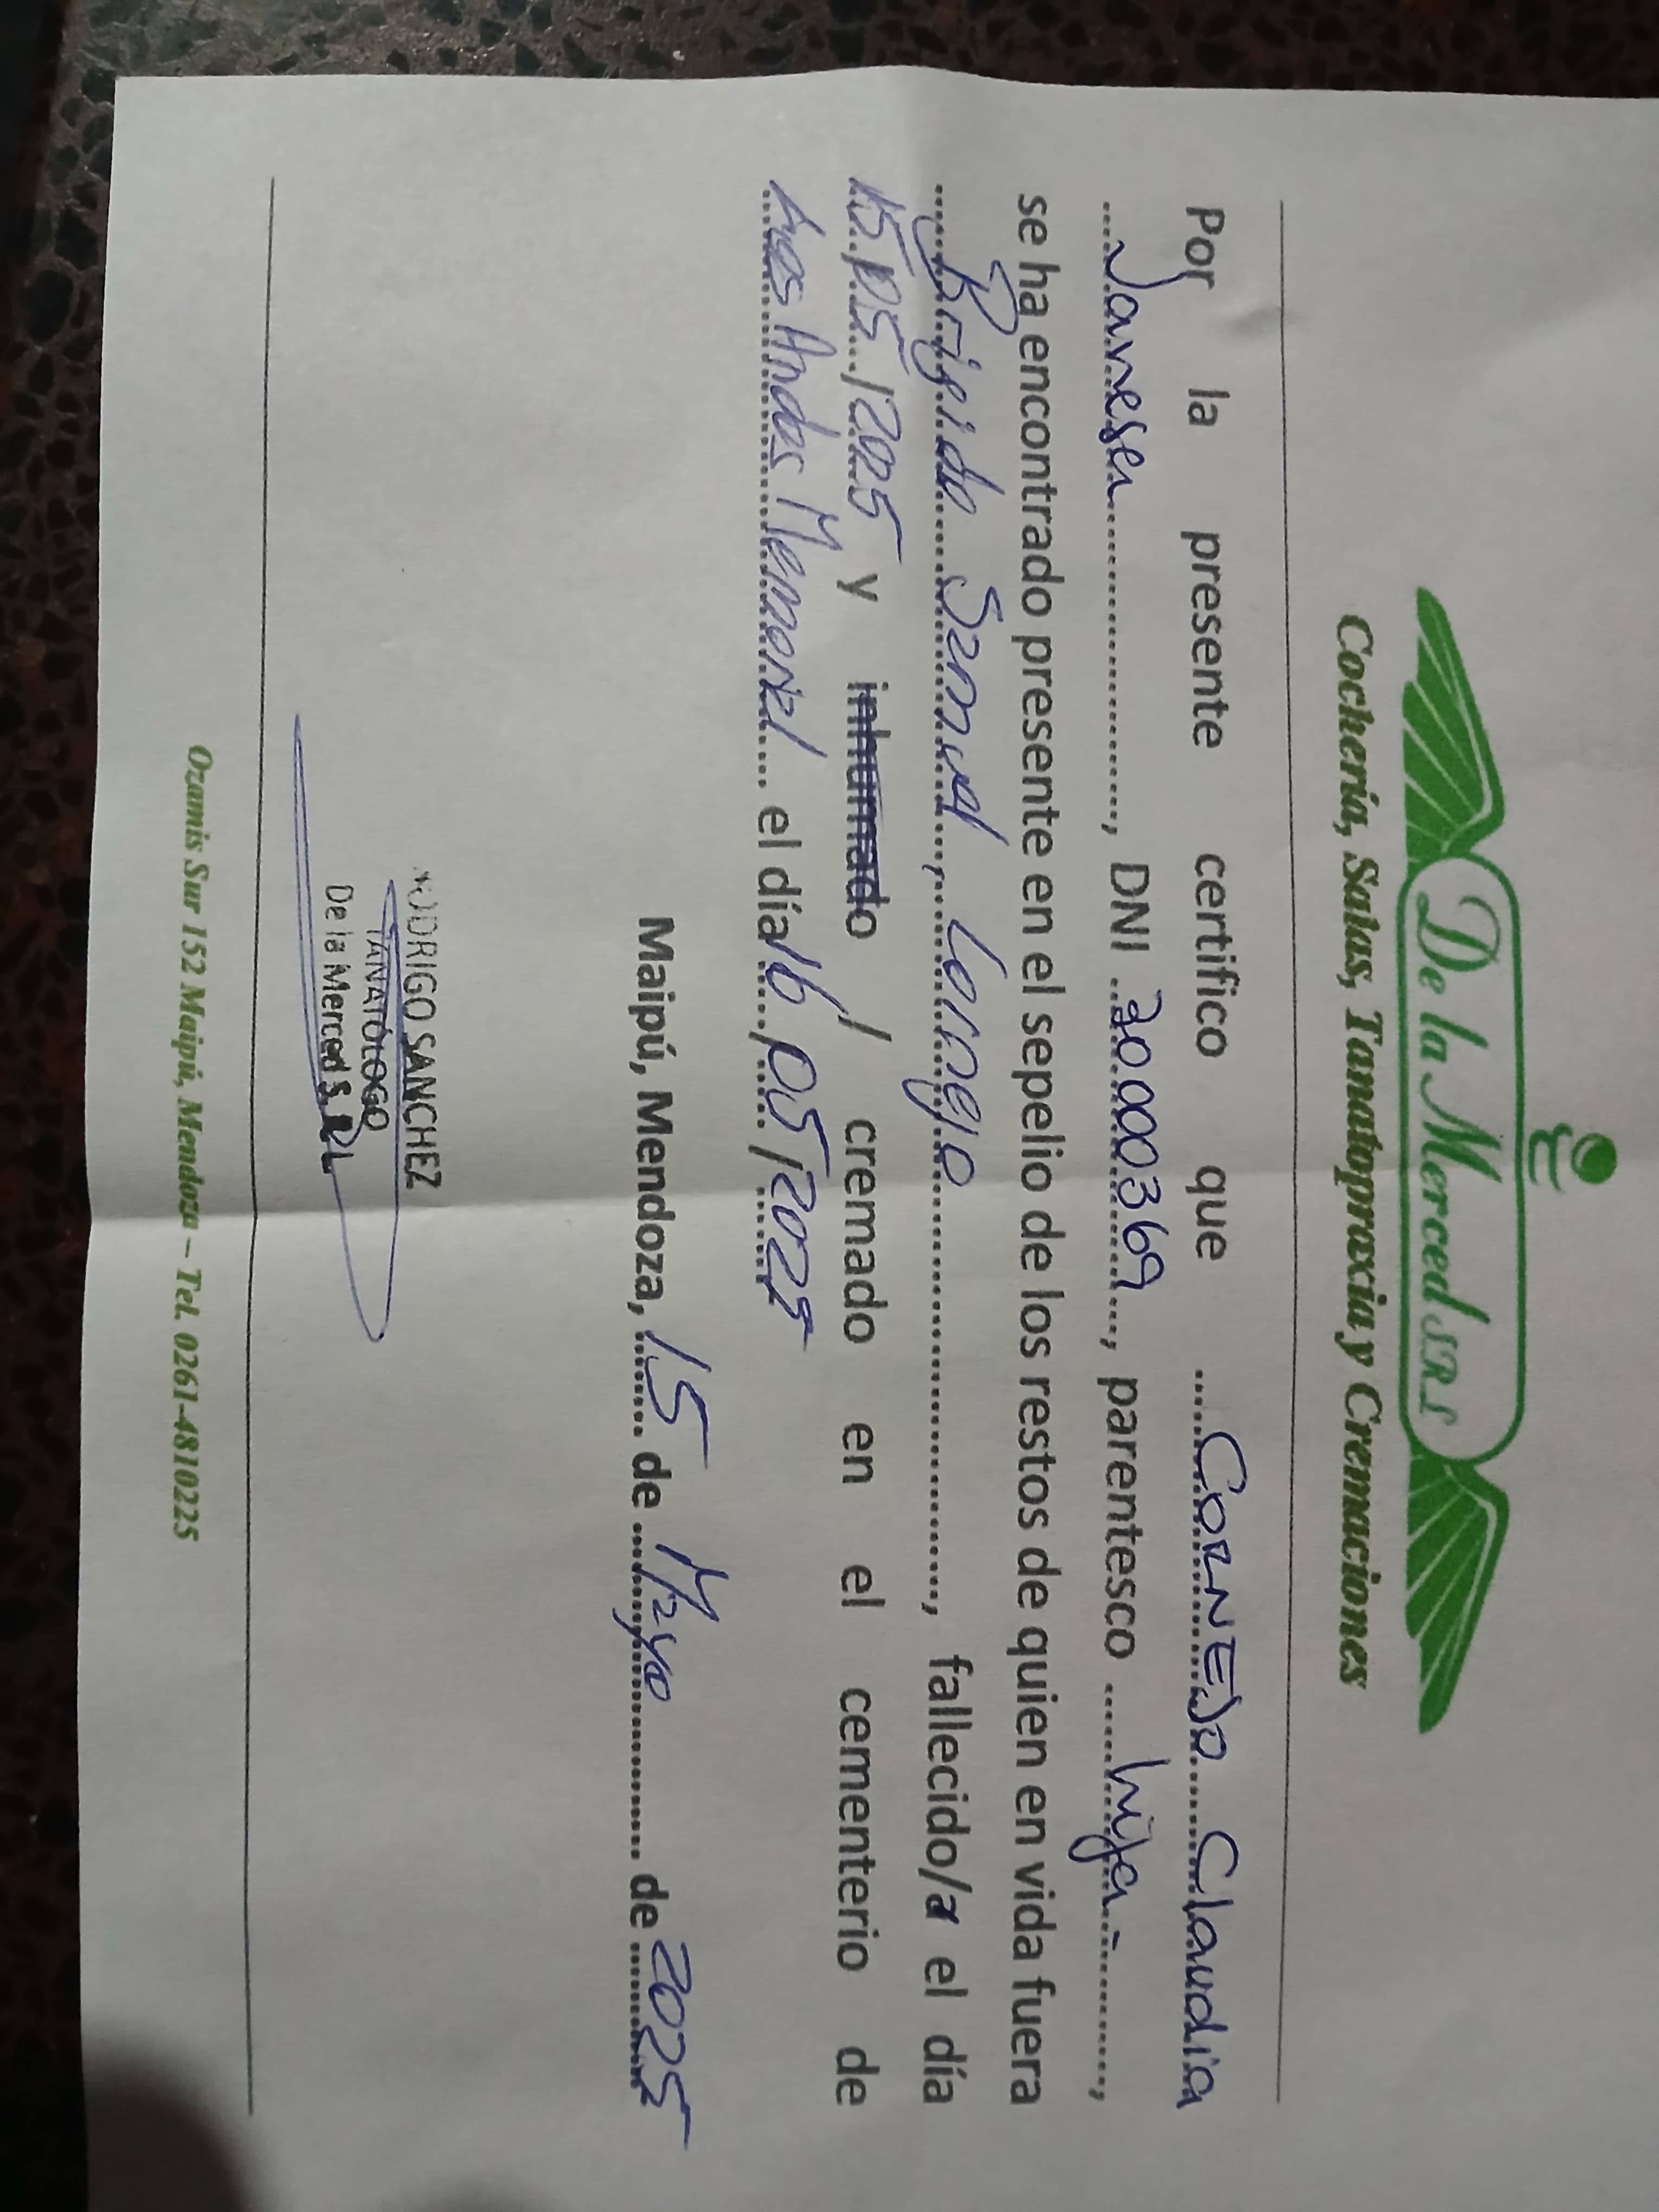 De la Merced SRL
Cochería, Salas, Tanatopraxia y Cremaciones
Por la presente certifico que CORNEJO Claudia
Vanesa, DNI 30000369, parentesco hija,
se ha encontrado presente en el sepelio de los restos de quien en vida fuera
Brígido Samuel Cornejo, fallecido/a el día
15/05/2025 y inhumado / cremado en el cementerio de
Los Andes Memorial el día 16/05/2025
Maipú, Mendoza, 15 de Mayo de 2025
RODRIGO SANCHEZ
TANATÓLOGO
De la Merced S.R.L
Ozamis Sur 152 Maipú, Mendoza – Tel. 0261-4810225